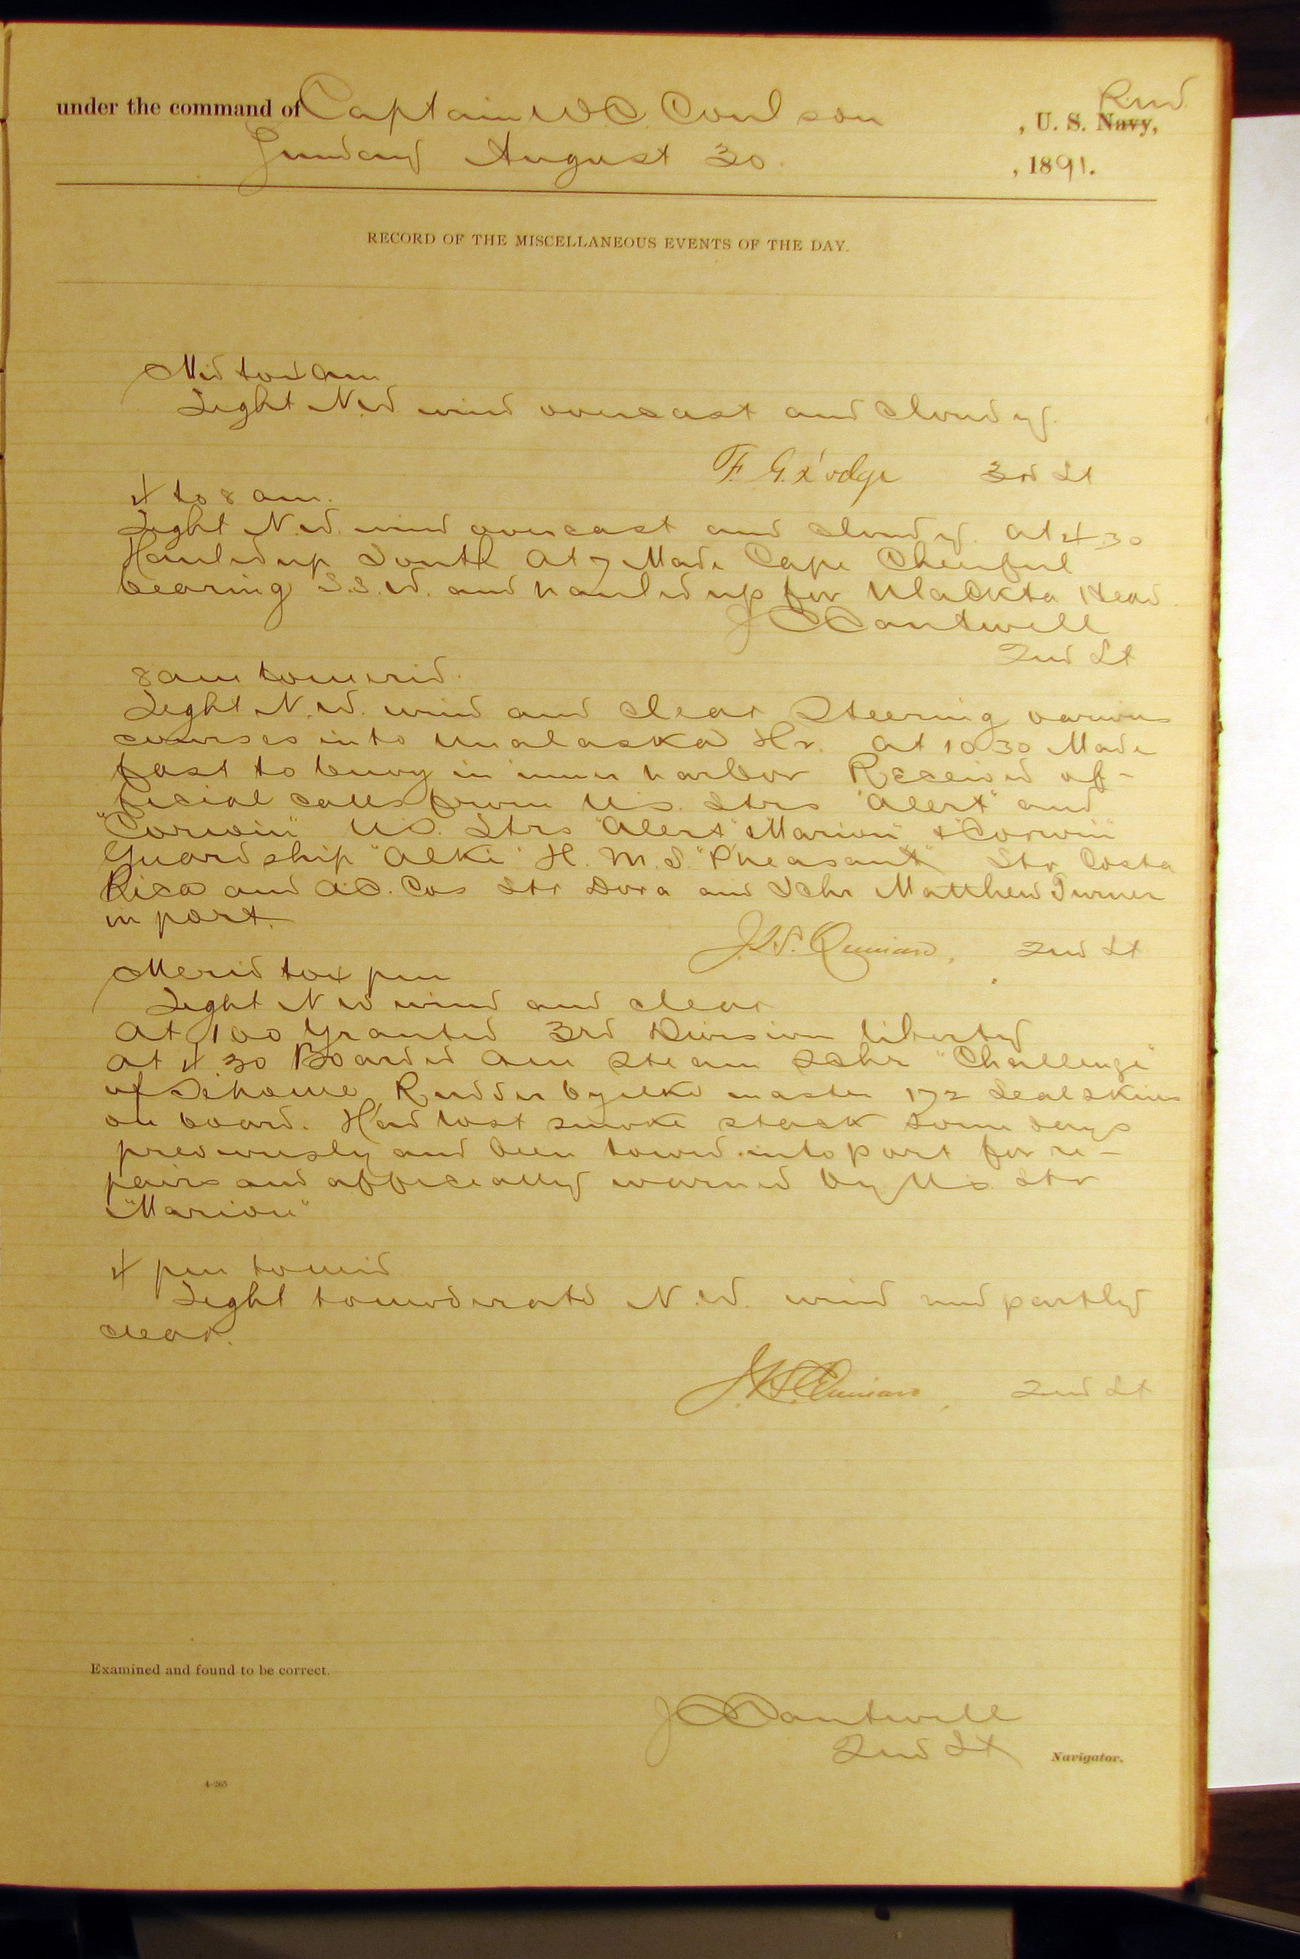 under the command of Captain W.C. Coulson , U. S. Navy, Rev.
Sunday August 30 , 1891.
RECORD OF THE MISCELLANEOUS EVENTS OF THE DAY.
Mid to 4 am
Light N.W wind overcast and cloudy.
F. G. Dodge 3rd Lt
4 to 8 am.
Light N.W. wind overcast and cloudy. At 4 30
Hauled up South At 7 Made Cape Cheerful
bearing S.S.W. and hauled up for Ulackta Head
J C Cantwell
2nd Lt
8 am to merid.
Light N.W. wind and clear Steering various
courses into Unalaska Hr. At 10 30 Made
fast to buoy in inner harbor Received of-
ficial calls from U.S. Strs "Alert" and
"Corwin" U.S. Strs "Alert" "Marion" & "Corwin"
Guard ship "Alki" H. M. S. "Pheasant" Str Costa
Rica and A.C. Cos Str Dora and Schr Matthew Turner
in port.
2nd Lt
Merid to 4 pm
Light N W wind and clear
At 1 00 Granted 3rd Division liberty
At 4.30 Boarded Am Steam Schr "Challenge"
of Sehome master 172 Seal skins
on board. Had lost smoke stack some days
previously and been towed into port for re-
pairs and officially warned by U.S. Str
"Marion"
4 pm to mid
Light to moderate N.W. wind and partly
clear.
2nd Lt
Examined and found to be correct.
J C Cantwell
2nd Lt Navigator.
4-265